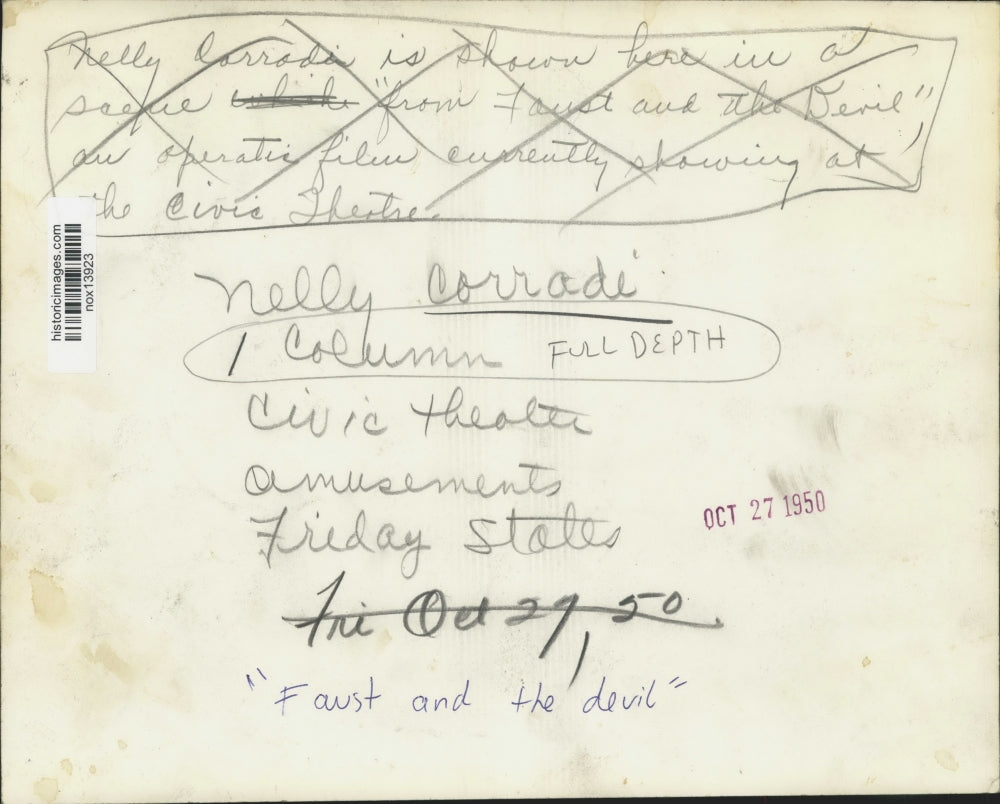 Nelly Corradi is shown here in a
scene while "from Faust and the Devil"
an operatic film currently showing at
the Civic Theatre.
historicimages.com
nox13923
Nelly Corradi
1 Column FULL DEPTH
Civic theater
amusements
Friday States
OCT 27 1950
Fri Oct 27, 50
"Faust and the devil"